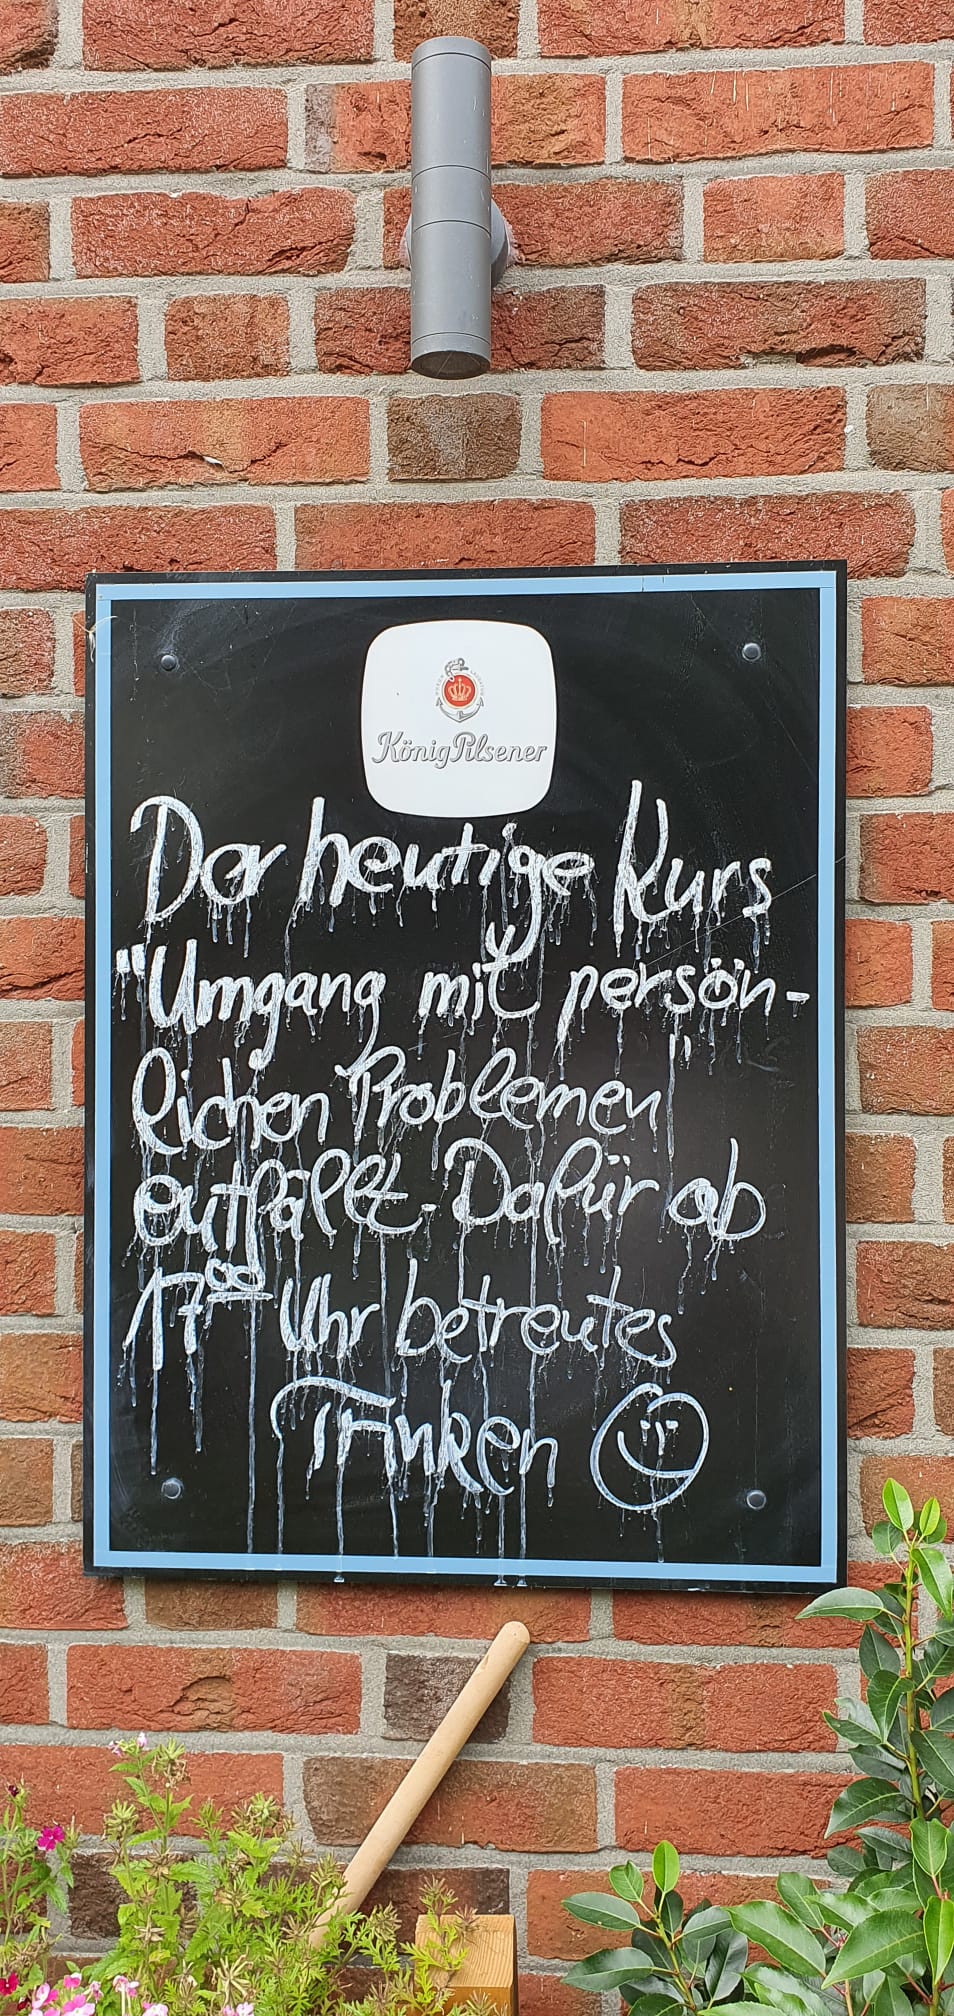 König Pilsener
Der heutige Kurs
"Umgang mit persön-
lichen Problemen"
entfällt. Dafür ab
17⁰⁰ Uhr betreutes
Trinken